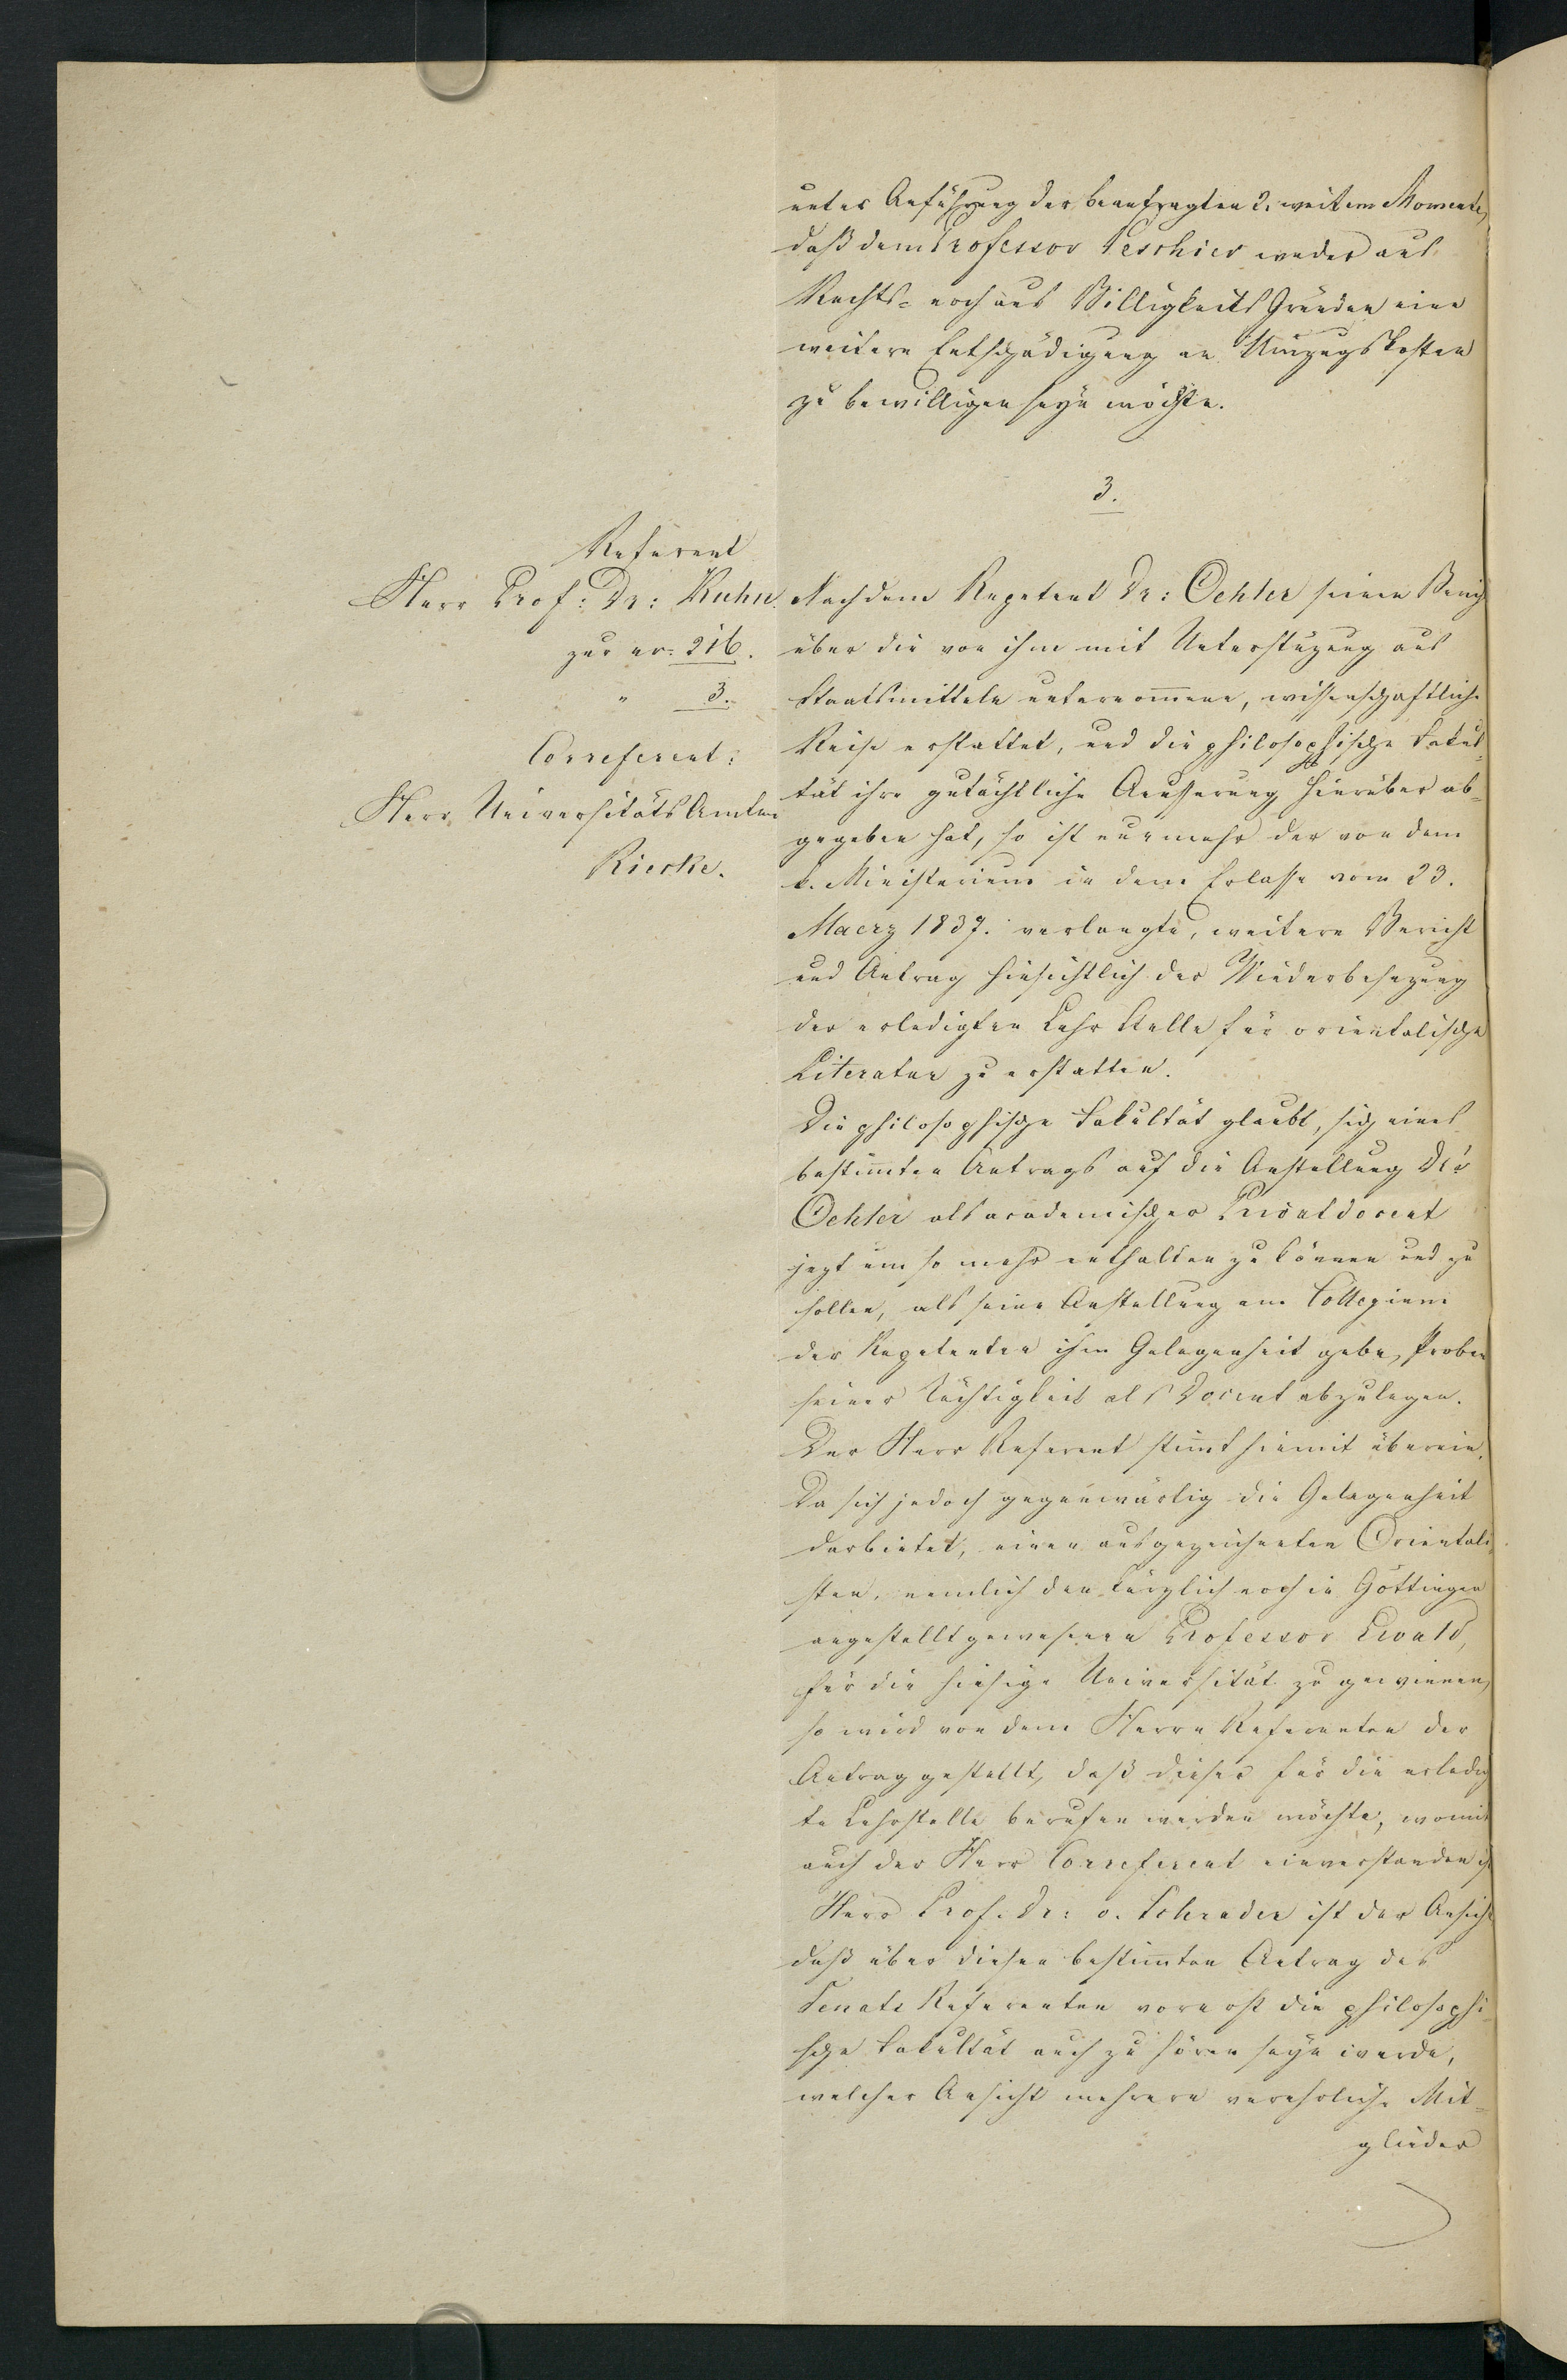 unter Anführung der beantragten 2. weitern Momente,
daß dem Professor Peschier weder aus
Rechts- noch aus Billigkeits Gründen eine
weitere Entschädigung an Umzugskosten
zu bewilligen seyn möchte.
3.
Referent
Herr Prof: Dr: Kuhn.
zur nr. 216.
" 3.
Correferent:
Herr Universitäts Amtm
Riecke.
Nachdem Repetent Dr: Oehler seinen Berich
über die von ihm mit Unterstüzung aus
Staatsmitteln unternomene, wissenschaftliche
Reise erstattet, und die philosophische Fakul-
tät ihre gutächtliche Aeusserung hierüber ab-
gegeben hat, so ist nunmehr der von dem
k. Ministerium in dem Erlasse vom 23.
Maerz 1837. verlangte, weitere Bericht
und Antrag hinsichtlich der Wiederbesezung
der erledigten Lehr Stelle für orientalische
Literatur zu erstatten.
Die philosophische Fakultät glaubt, sich eines
bestimten Antrags auf die Anstellung Dr:
Oehler als academischer Privatdocent
jezt um so mehr enthalten zu können und zu
sollen, als seine Anstellung am Collegium
der Repetenten ihm Gelegenheit gebe, Proben
seiner Tüchtigkeit als Docent abzulegen.
Der Herr Referent stimt hiemit überein.
Da sich jedoch gegenwärtig die Gelegenheit
darbietet, einen ausgezeichneten Orientali-
sten, nemlich den kürzlich noch in Göttingen
angestellt gewesenen Professor Ewald,
für die hiesige Universität zu gewinnen,
so wird von dem Herrn Referenten der
Antrag gestellt, daß dieser für die erledig
te Lehrstelle berufen werden möchte, womit
auch der Herr Correferent einverstanden ist
Herr Prof. Dr: v. Schrader ist der Ansicht
daß über diesen bestimten Antrag des
Senats Referenten vorerst die philosophi-
sche Fakultät auch zu hören seyn werde,
welcher Ansicht mehrere verehrliche Mit-
glieder